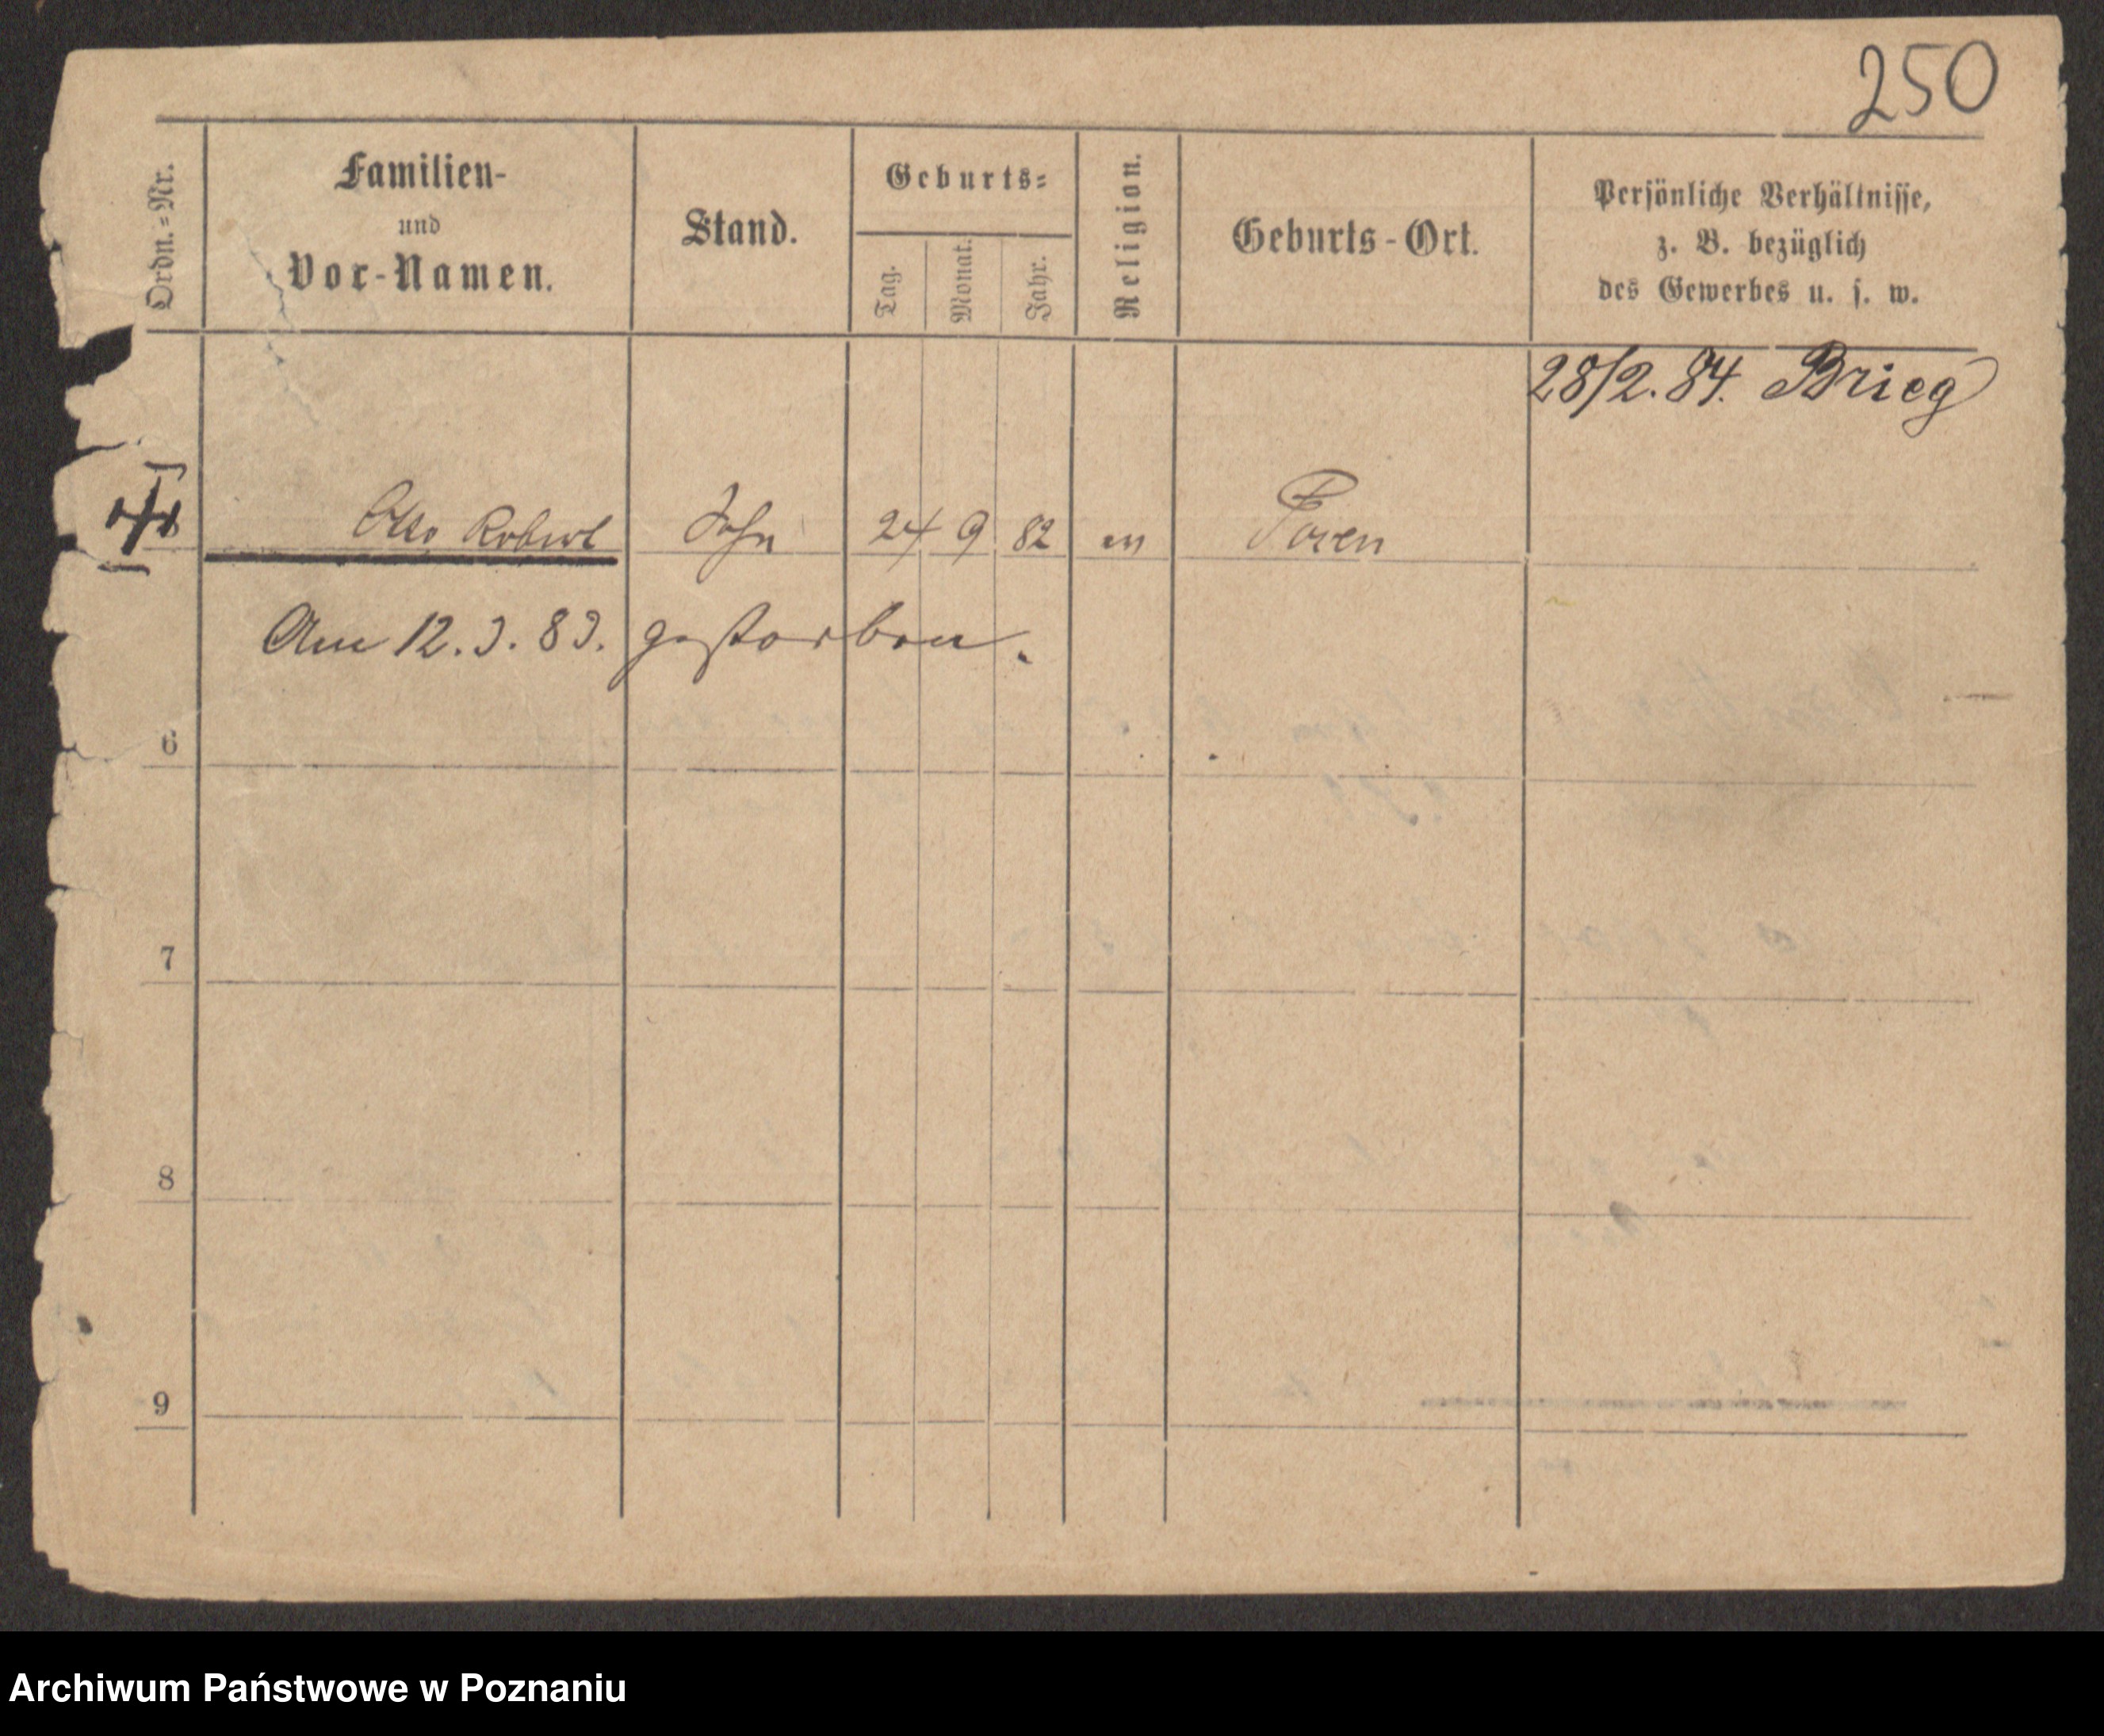 250
Ordn.-Nr.
Familien-
und
Vor-Namen.
Stand.
Geburts-
Tag.
Monat.
Jahr.
Religion.
Geburts-Ort.
Persönliche Verhältnisse,
z. B. bezüglich
des Gewerbes u. s. w.
28/2. 84. Brieg
Otto Robert Sohn 24 9 82 ev Posen
Am 12. 3. 83. gestorben.
6
7
8
9
Archiwum Państwowe w Poznaniu